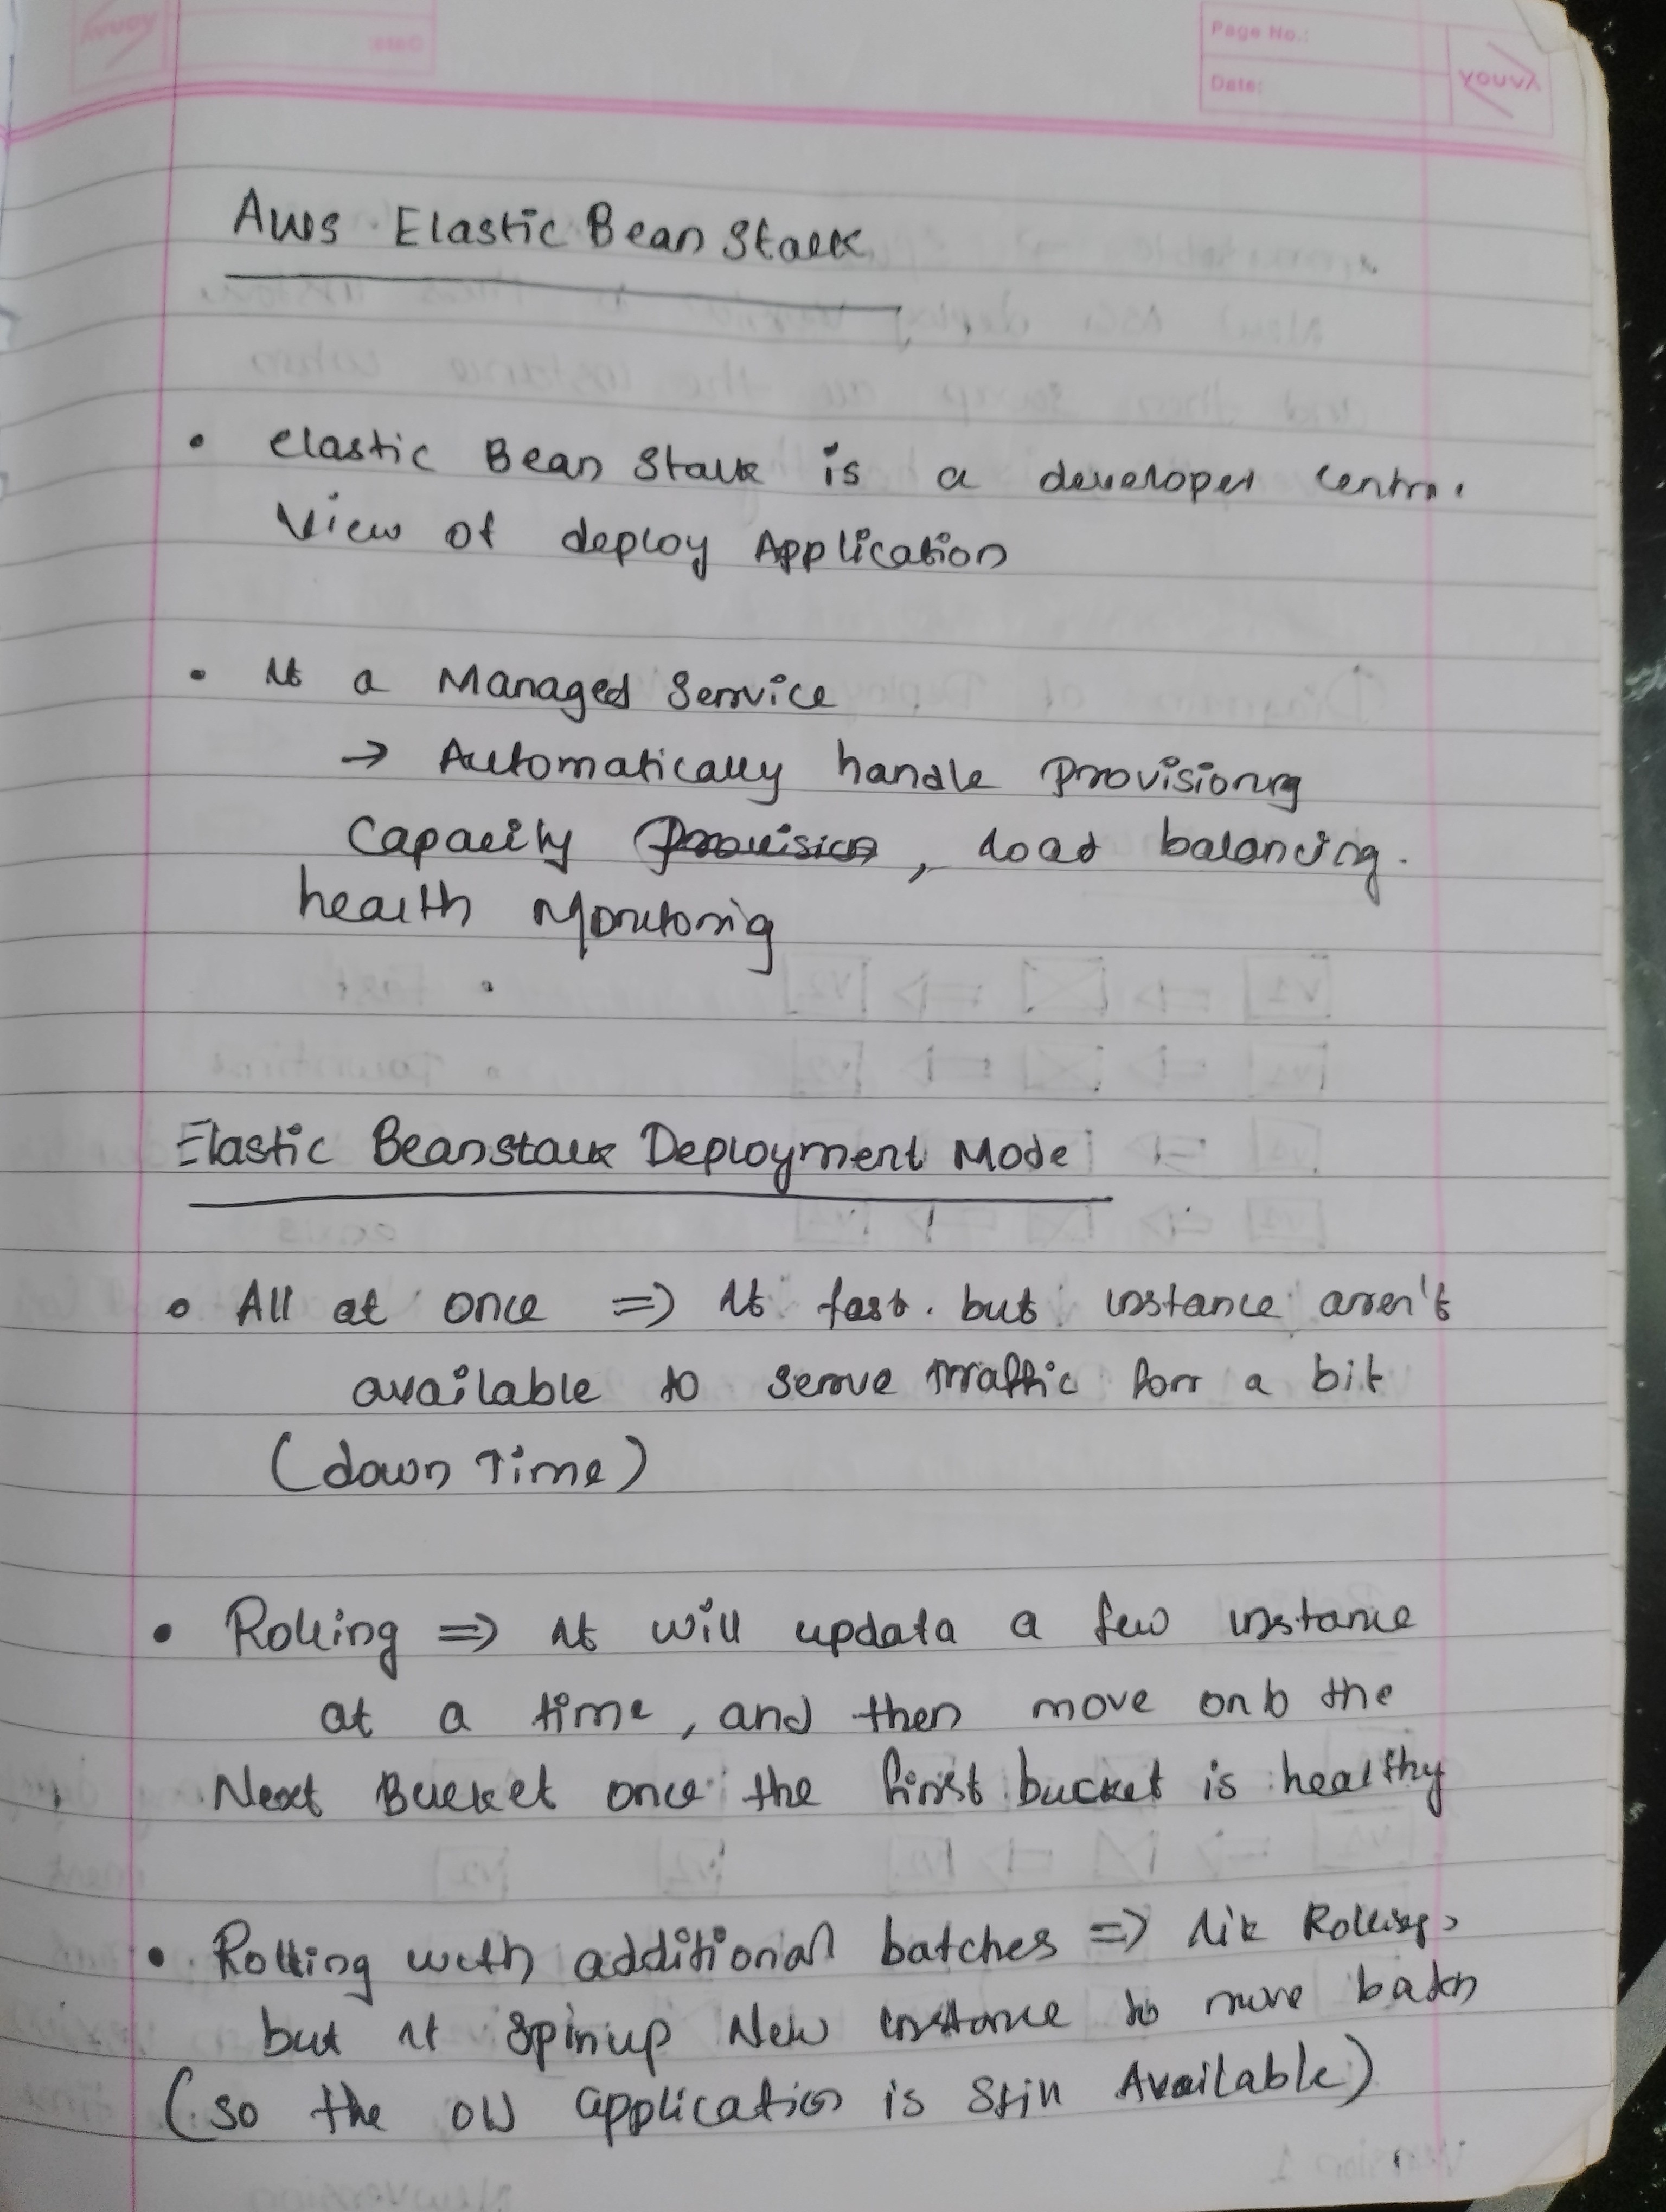 Page No.:
Date:
YOUVA
Aws Elastic Bean Stalk
• elastic Bean Stalk is a developer
View of deploy Application
• It a Managed Service
→ Automatically handle provisioning
Capacity provision, load balancing.
health Monitoring
Elastic Beanstalk Deployment Mode
• All at once => It fast. but instance aren't
available to serve traffic for a bit
(down Time)
• Rolling => It will updata a few instance
at a time, and then move onto the
Next Bucket once the first bucket is healthy
• Rolling with additional batches => lik Rolling,
but it spinup New instance to move batch
(so the old application is still Available)